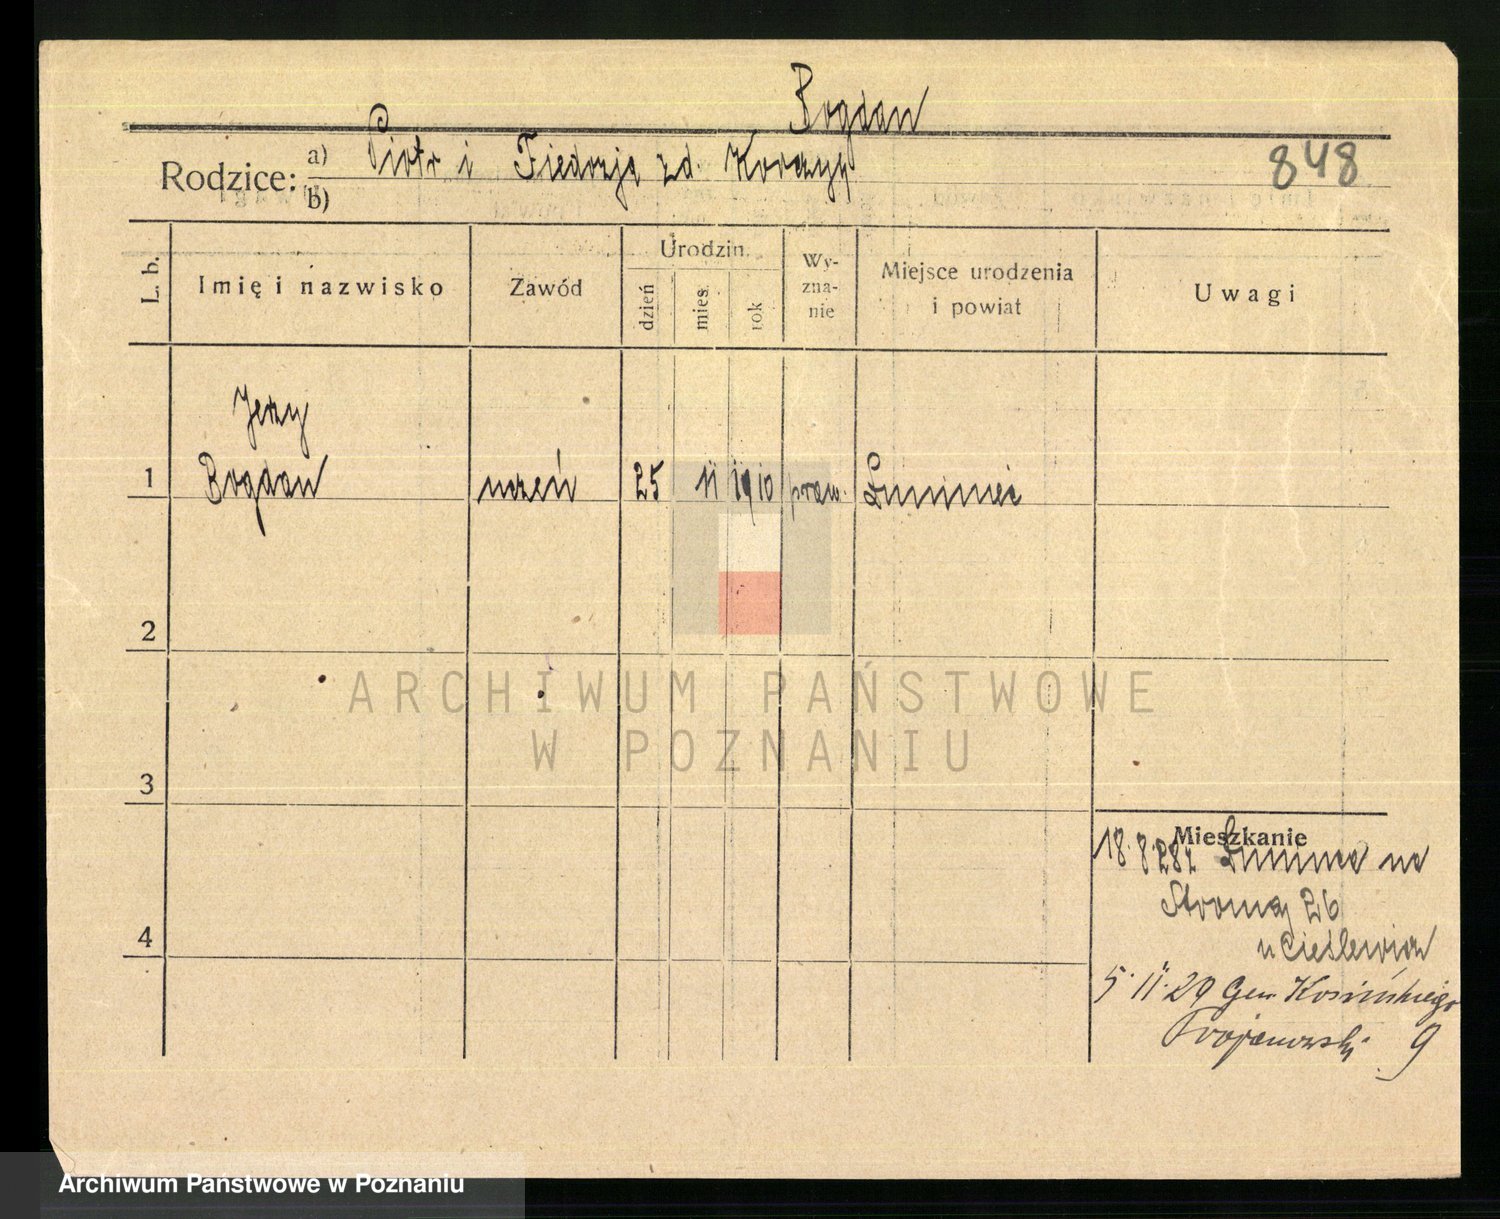 Bogdan
Rodzice: a) Piotr i Fiedozja zd. Korczyy
b)
848
L. b.
Imię i nazwisko
Zawód
Urodzin.
dzień
mies.
rok
Wy-
zna-
nie
Miejsce urodzenia
i powiat
Uwagi
Jerzy
1 Bogdan uczeń 25 11 1910 praw. Łuniniec
2
ARCHIWUM PAŃSTWOWE
W POZNANIU
3
Mieszkanie
18.8.28 z Łunińca na
Stromą 26
u Cieślewicz
4
5.11.29 Gen. Kosińskiego
Trojanowski 9
Archiwum Państwowe w Poznaniu